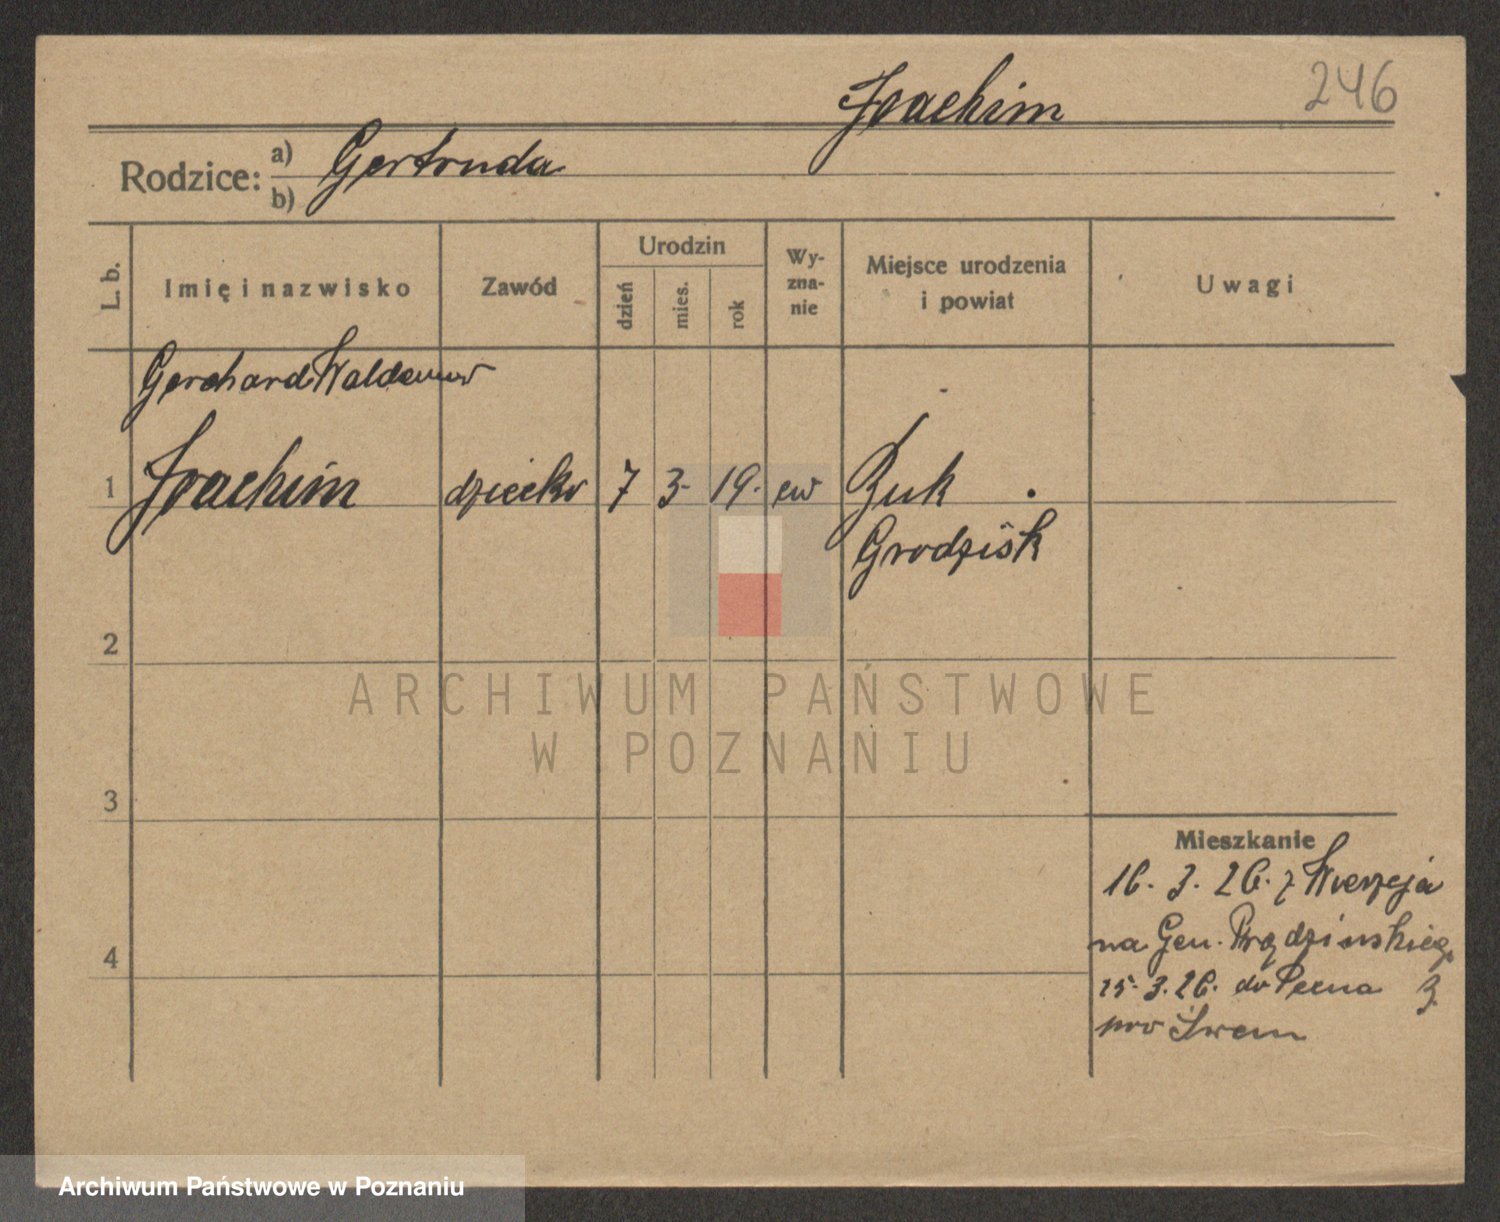 246
Joachim
Rodzice: a) Gertruda
b)
L. b.
Imię i nazwisko
Zawód
Urodzin
dzień
mies.
rok
Wy-
zna-
nie
Miejsce urodzenia
i powiat
Uwagi
Gerchard Waldemar
1 Joachim dziecko 7 3. 19. ew Buk
Grodzisk
2
3
4
Mieszkanie
16. 3. 26. z Wierzeja
na Gen. Prądzińskieg. 3.
25. 3. 26. do Pecna
Śrem
ARCHIWUM PAŃSTWOWE
W POZNANIU
Archiwum Państwowe w Poznaniu